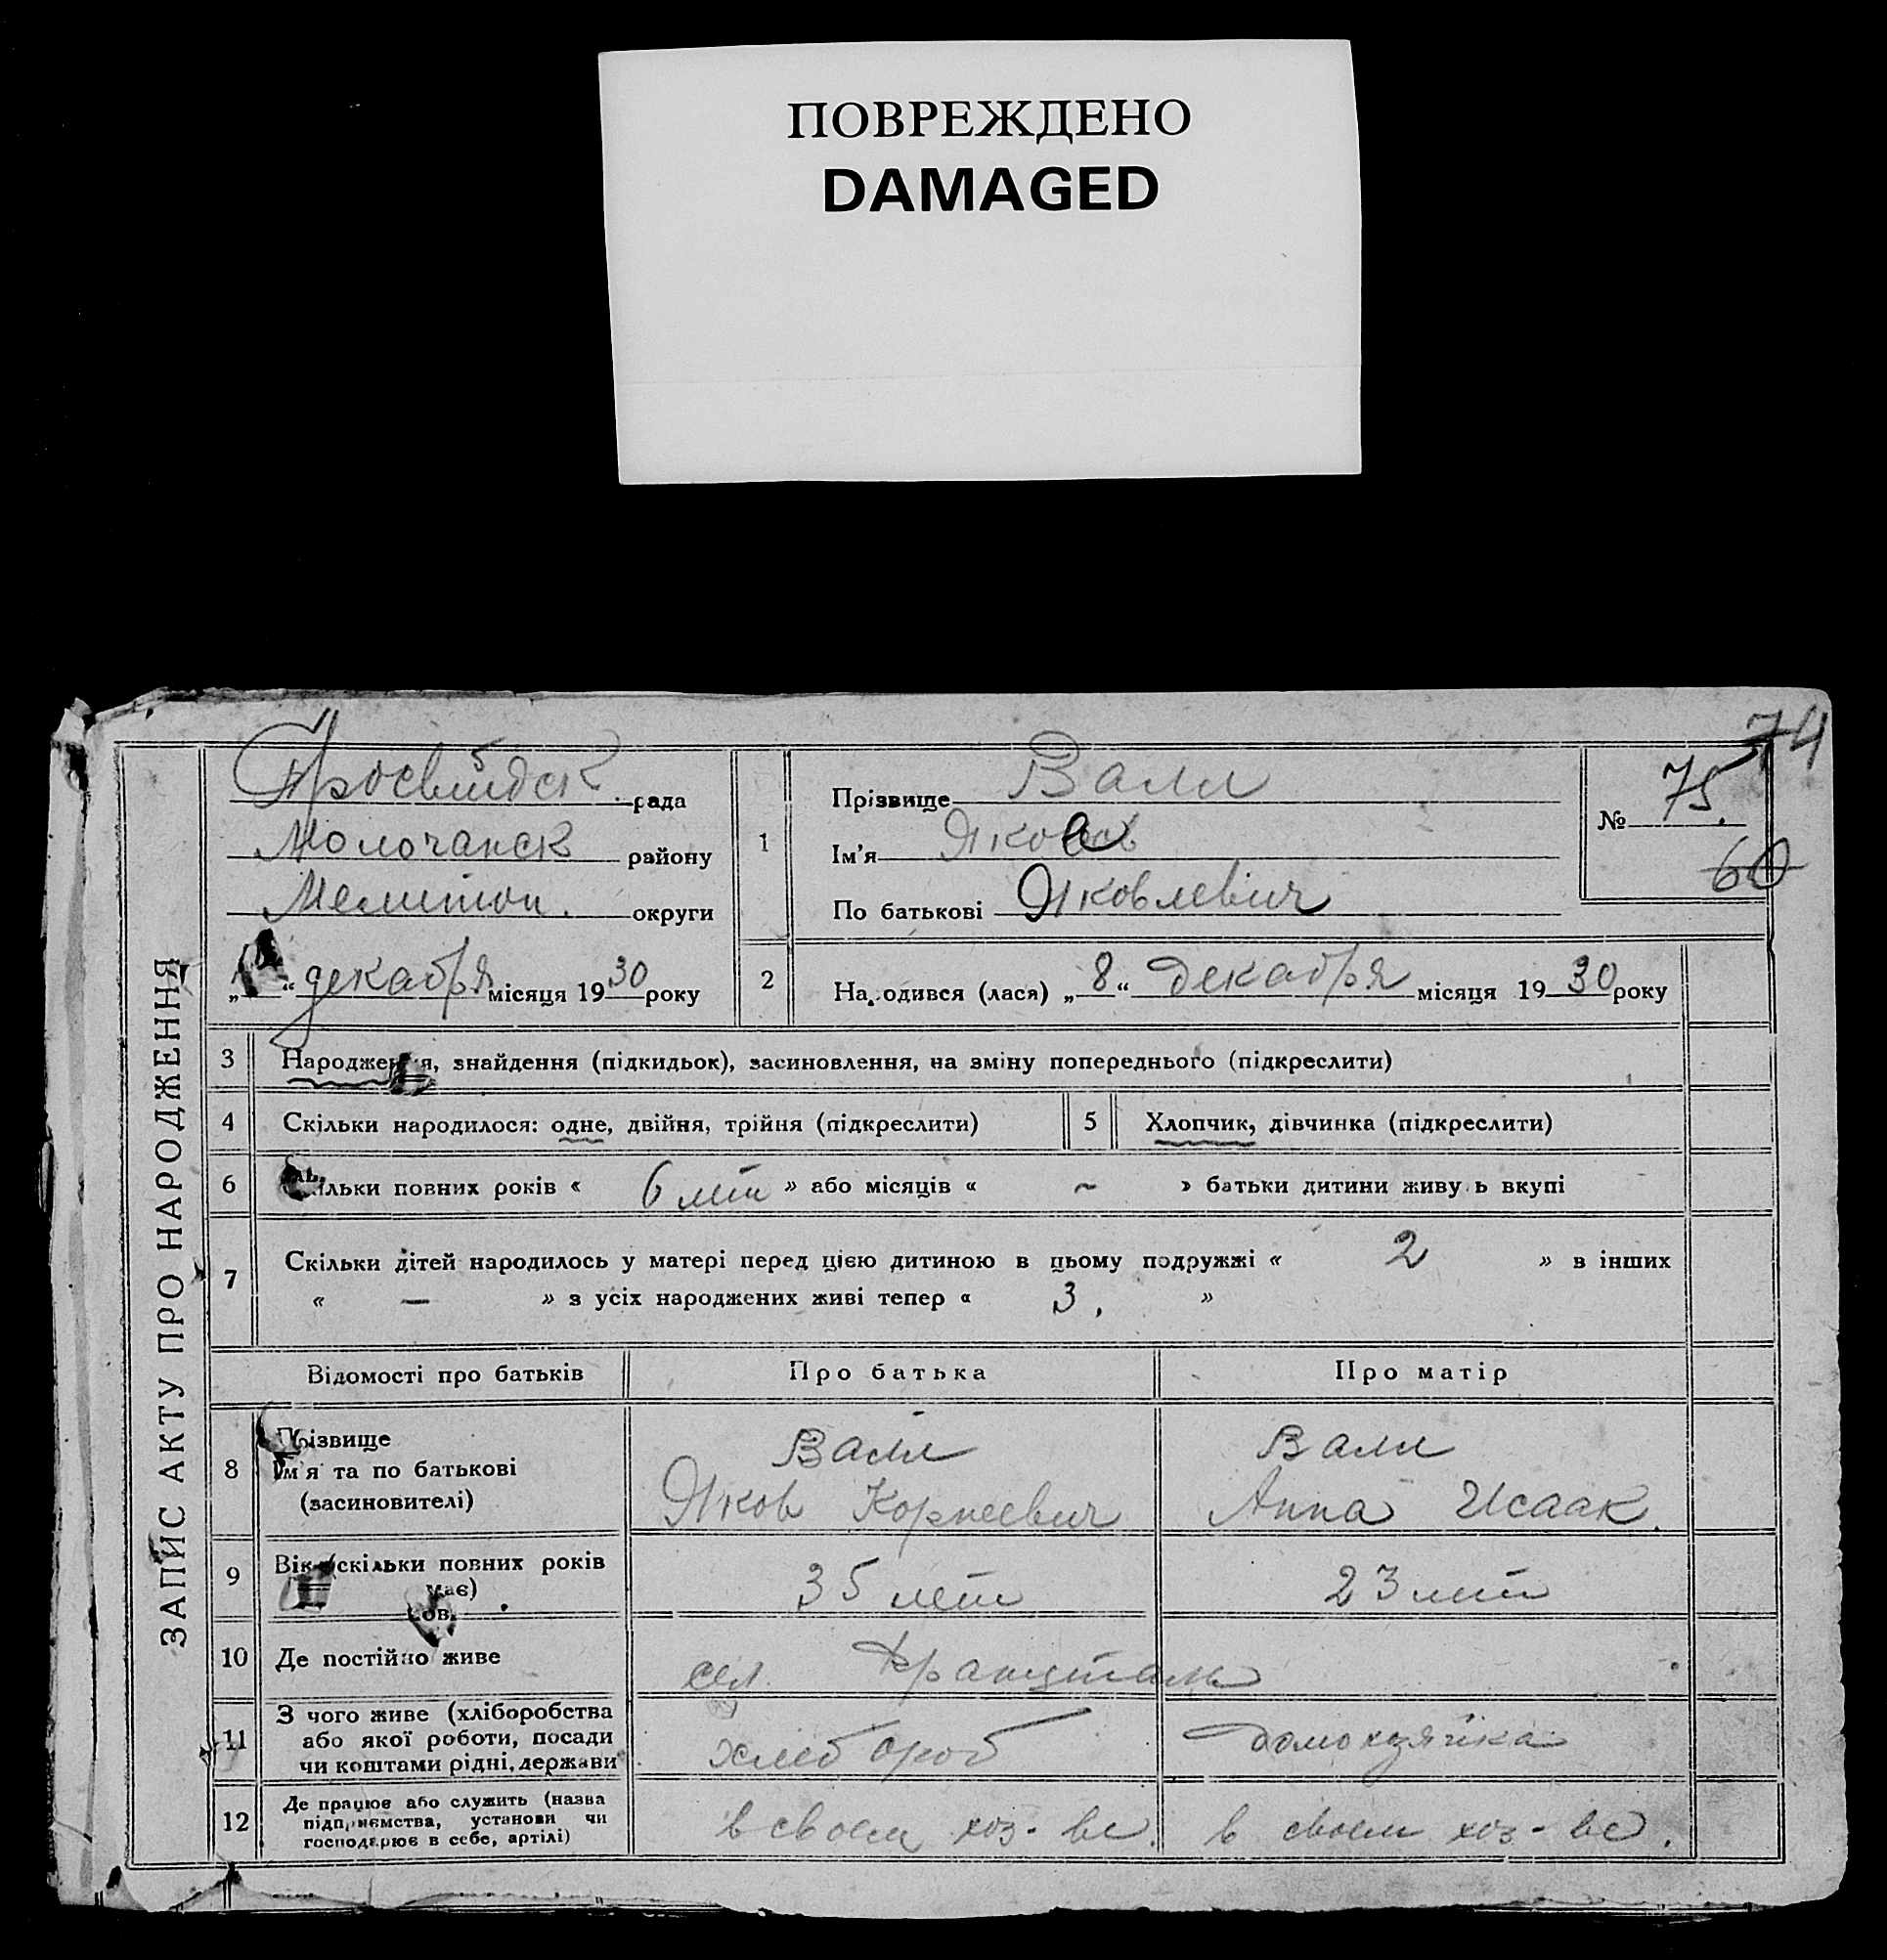 ПОВРЕЖДЕНО
DAMAGED
74
ЗАПИС АКТУ ПРО НАРОДЖЕННЯ
рада
Молочанск району
Мелитоп. округи
„ “ декабря місяця 1930 року
1
Прізвище Валл
Ім'я Яков
По батькові Яковлевич
№ 75.
60
2
На.одився (лася) „8“ декабря місяця 1930 року
3 Народження, знайдення (підкидьок), засиновлення, на зміну попереднього (підкреслити)
4 Скільки народилося: одне, двійня, трійня (підкреслити)
5 Хлопчик, дівчинка (підкреслити)
6 ільки повних років « 6 лет » або місяців « ~ » батьки дитини живу ь вкупі
7 Скільки дітей народилось у матері перед цією дитиною в цьому подружжі « 2 » в інших
« — » з усіх народжених живі тепер « 3. »
Відомості про батьків Про батька Про матір
8 Прізвище Валл Валл
Ім'я та по батькові Яков Корнеевич Анна Исаак.
(засиновителі)
9 Вік (скільки повних років 35 лет 23 лет
має)
10 Де постійно живе сел. Францталь
11 З чого живе (хліборобства
або якої роботи, посади хлебороб домохзяйка
чи коштами рідні, держави
12 Де працює або служить (назва
підприємства, установи чи в своем хоз-ве. в своем хоз-ве.
господарює в себе, артілі)